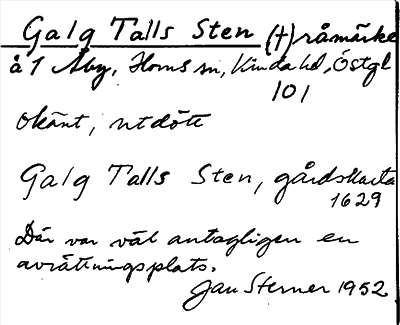 Galg Talls Sten (†) råmärke
å 1 Åby, Horns sn, Kinda hd, Östgl
101
Okänt, utdött
Galg Talls Sten, gårdskarta
1629
Där var väl antagligen en
avrättningsplats.
Jan Sterner 1952